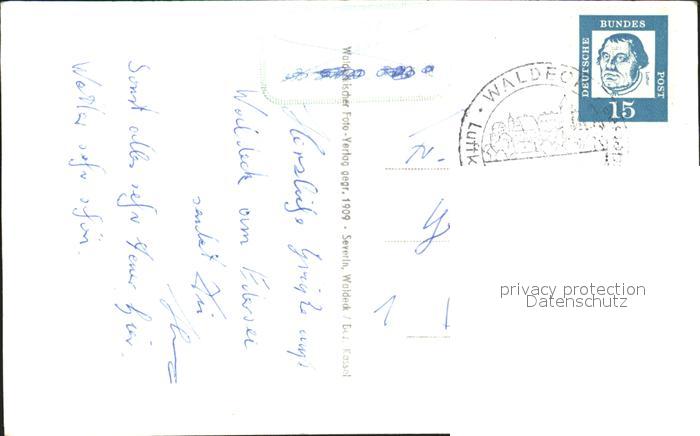 Herzliche Grüße aus
Waldeck am Edersee
sendet Dir
Sonst alles sehr teuer hier.
Wetter sehr schön.
Waldeckischer Foto-Verlag gegr. 1909 · Severin, Waldeck / Bez. Kassel
DEUTSCHE
BUNDES
POST
15
· WALDECK
Luftk
privacy protection
Datenschutz